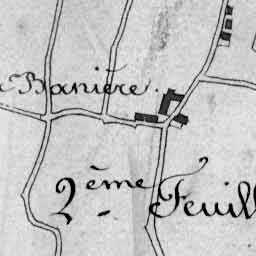 Banière.
2ème Feuill